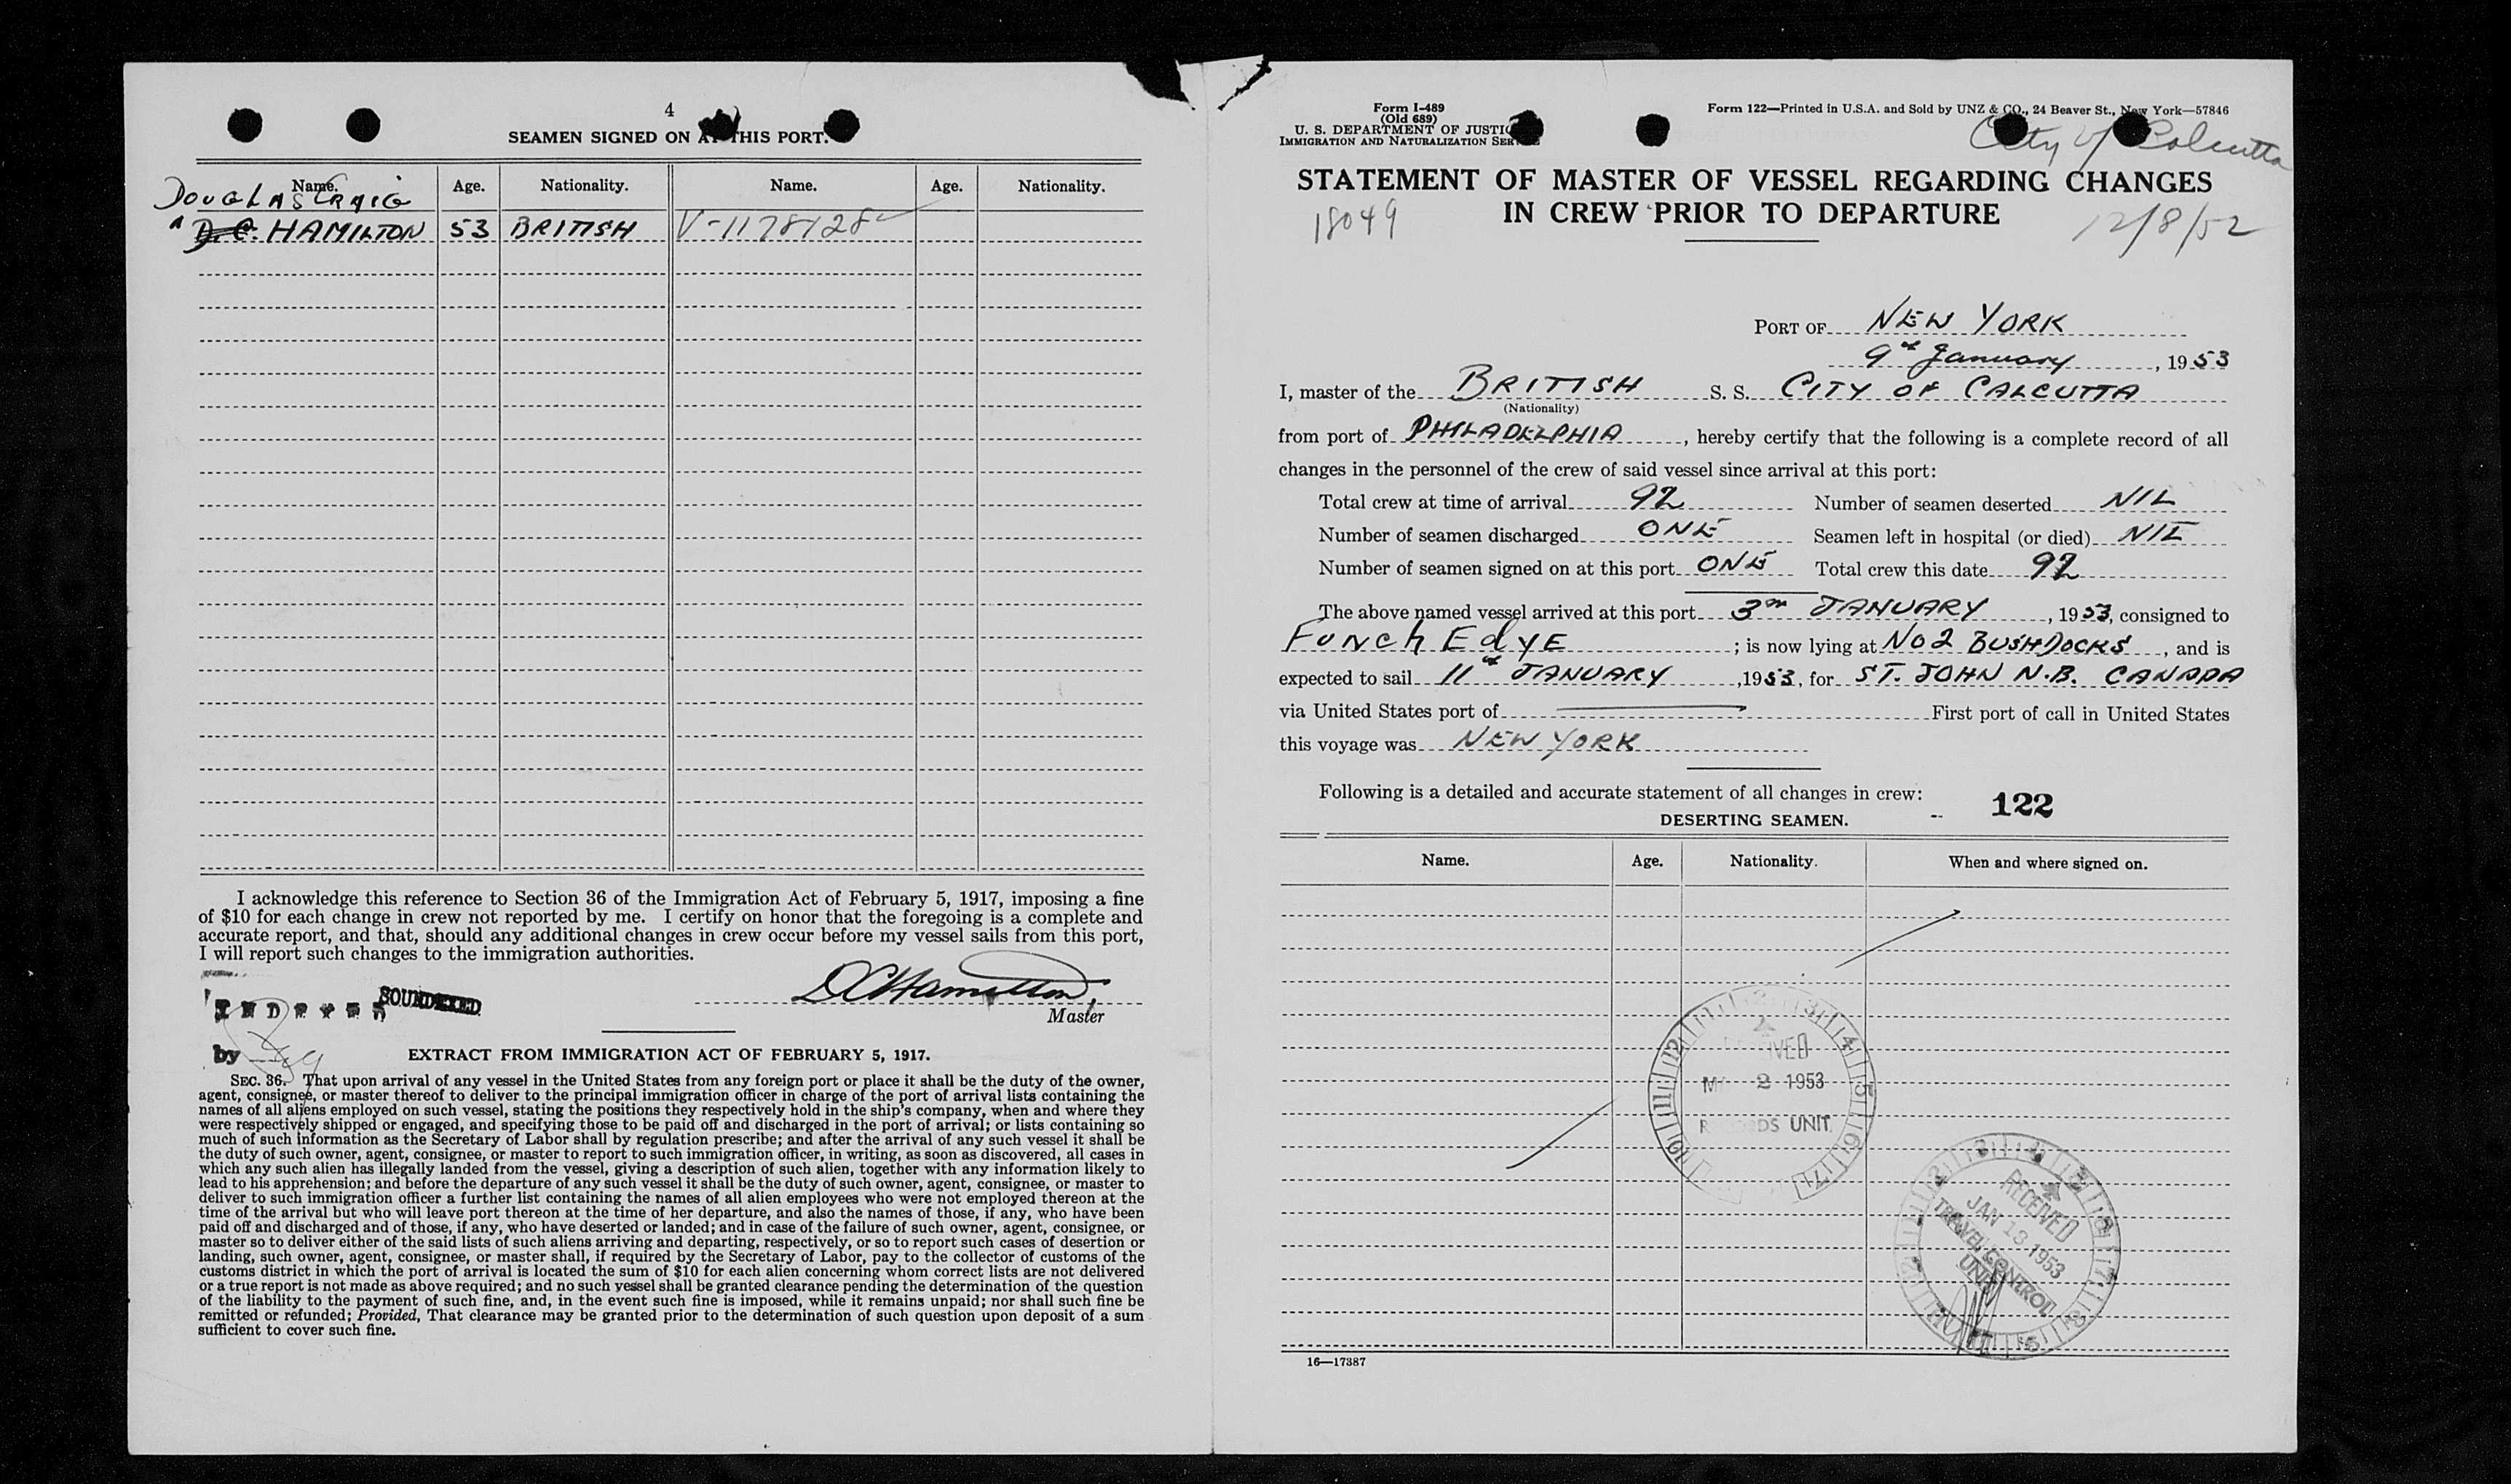 4
SEAMEN SIGNED ON AT THIS PORT.
Name. Age. Nationality. Name. Age. Nationality.
DOUGLAS CRAIG
D. C. HAMILTON 53 BRITISH V-1178128
I acknowledge this reference to Section 36 of the Immigration Act of February 5, 1917, imposing a fine
of $10 for each change in crew not reported by me. I certify on honor that the foregoing is a complete and
accurate report, and that, should any additional changes in crew occur before my vessel sails from this port,
I will report such changes to the immigration authorities.
INDEXED SOUNDEXED
DCHamilton,
Master
by
EXTRACT FROM IMMIGRATION ACT OF FEBRUARY 5, 1917.
SEC. 36. That upon arrival of any vessel in the United States from any foreign port or place it shall be the duty of the owner,
agent, consignee, or master thereof to deliver to the principal immigration officer in charge of the port of arrival lists containing the
names of all aliens employed on such vessel, stating the positions they respectively hold in the ship's company, when and where they
were respectively shipped or engaged, and specifying those to be paid off and discharged in the port of arrival; or lists containing so
much of such information as the Secretary of Labor shall by regulation prescribe; and after the arrival of any such vessel it shall be
the duty of such owner, agent, consignee, or master to report to such immigration officer, in writing, as soon as discovered, all cases in
which any such alien has illegally landed from the vessel, giving a description of such alien, together with any information likely to
lead to his apprehension; and before the departure of any such vessel it shall be the duty of such owner, agent, consignee, or master to
deliver to such immigration officer a further list containing the names of all alien employees who were not employed thereon at the
time of the arrival but who will leave port thereon at the time of her departure, and also the names of those, if any, who have been
paid off and discharged and of those, if any, who have deserted or landed; and in case of the failure of such owner, agent, consignee, or
master so to deliver either of the said lists of such aliens arriving and departing, respectively, or so to report such cases of desertion or
landing, such owner, agent, consignee, or master shall, if required by the Secretary of Labor, pay to the collector of customs of the
customs district in which the port of arrival is located the sum of $10 for each alien concerning whom correct lists are not delivered
or a true report is not made as above required; and no such vessel shall be granted clearance pending the determination of the question
of the liability to the payment of such fine, and, in the event such fine is imposed, while it remains unpaid; nor shall such fine be
remitted or refunded; Provided, That clearance may be granted prior to the determination of such question upon deposit of a sum
sufficient to cover such fine.
Form I-489
(Old 689)
U. S. DEPARTMENT OF JUSTICE
IMMIGRATION AND NATURALIZATION SERVICE
Form 122—Printed in U.S.A. and Sold by UNZ & CO., 24 Beaver St., New York—57846
City of Calcutta
STATEMENT OF MASTER OF VESSEL REGARDING CHANGES
IN CREW PRIOR TO DEPARTURE
18049
12/8/52
PORT OF NEW YORK
9th January, 1953
I, master of the BRITISH S. S. CITY OF CALCUTTA
(Nationality)
from port of PHILADELPHIA, hereby certify that the following is a complete record of all
changes in the personnel of the crew of said vessel since arrival at this port:
Total crew at time of arrival 92 Number of seamen deserted NIL
Number of seamen discharged ONE Seamen left in hospital (or died) NIL
Number of seamen signed on at this port ONE Total crew this date 92
The above named vessel arrived at this port 3rd JANUARY, 1953, consigned to
FUNCH EdYE; is now lying at No 2 BUSH DOCKS, and is
expected to sail 11th JANUARY, 1953, for ST. JOHN N.B. CANADA
via United States port of First port of call in United States
this voyage was NEW YORK
Following is a detailed and accurate statement of all changes in crew:
122
DESERTING SEAMEN.
Name. Age. Nationality. When and where signed on.
2 1953
UNIT
RECEIVED
JAN 13 1953
TRAVEL CONTROL
UNIT
16—17387